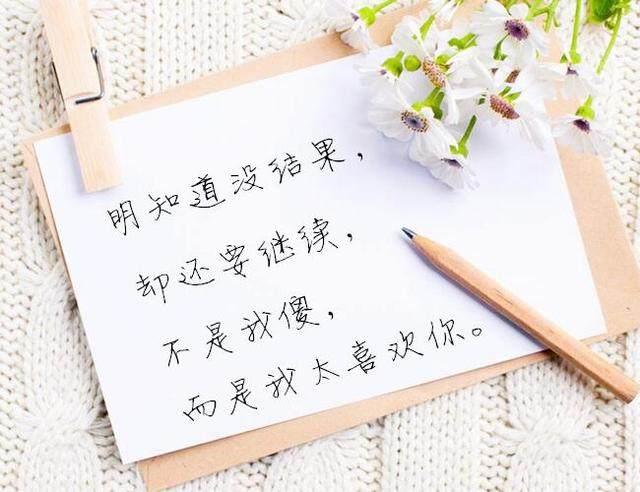 明知道没结果，
却还要继续，
不是我傻，
而是我太喜欢你。